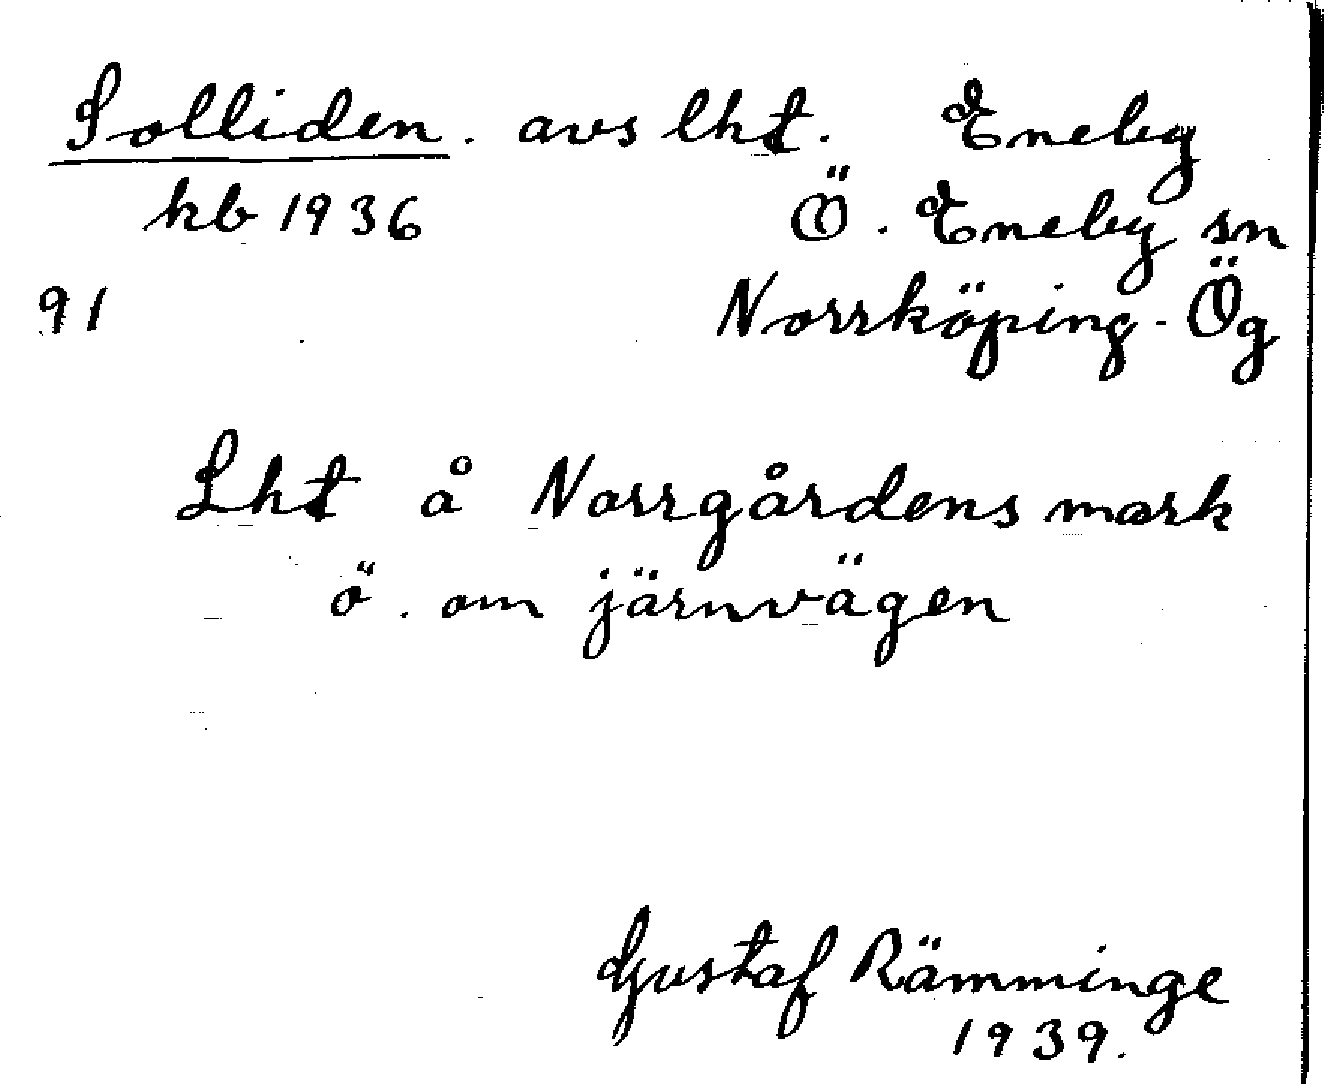 Solliden. avs lht. Eneby
kb 1936 Ö. Eneby sn
91 Norrköping. Ög
Lht å Norrgårdens mark
ö. om järnvägen
Gustaf Rämminge
1939.